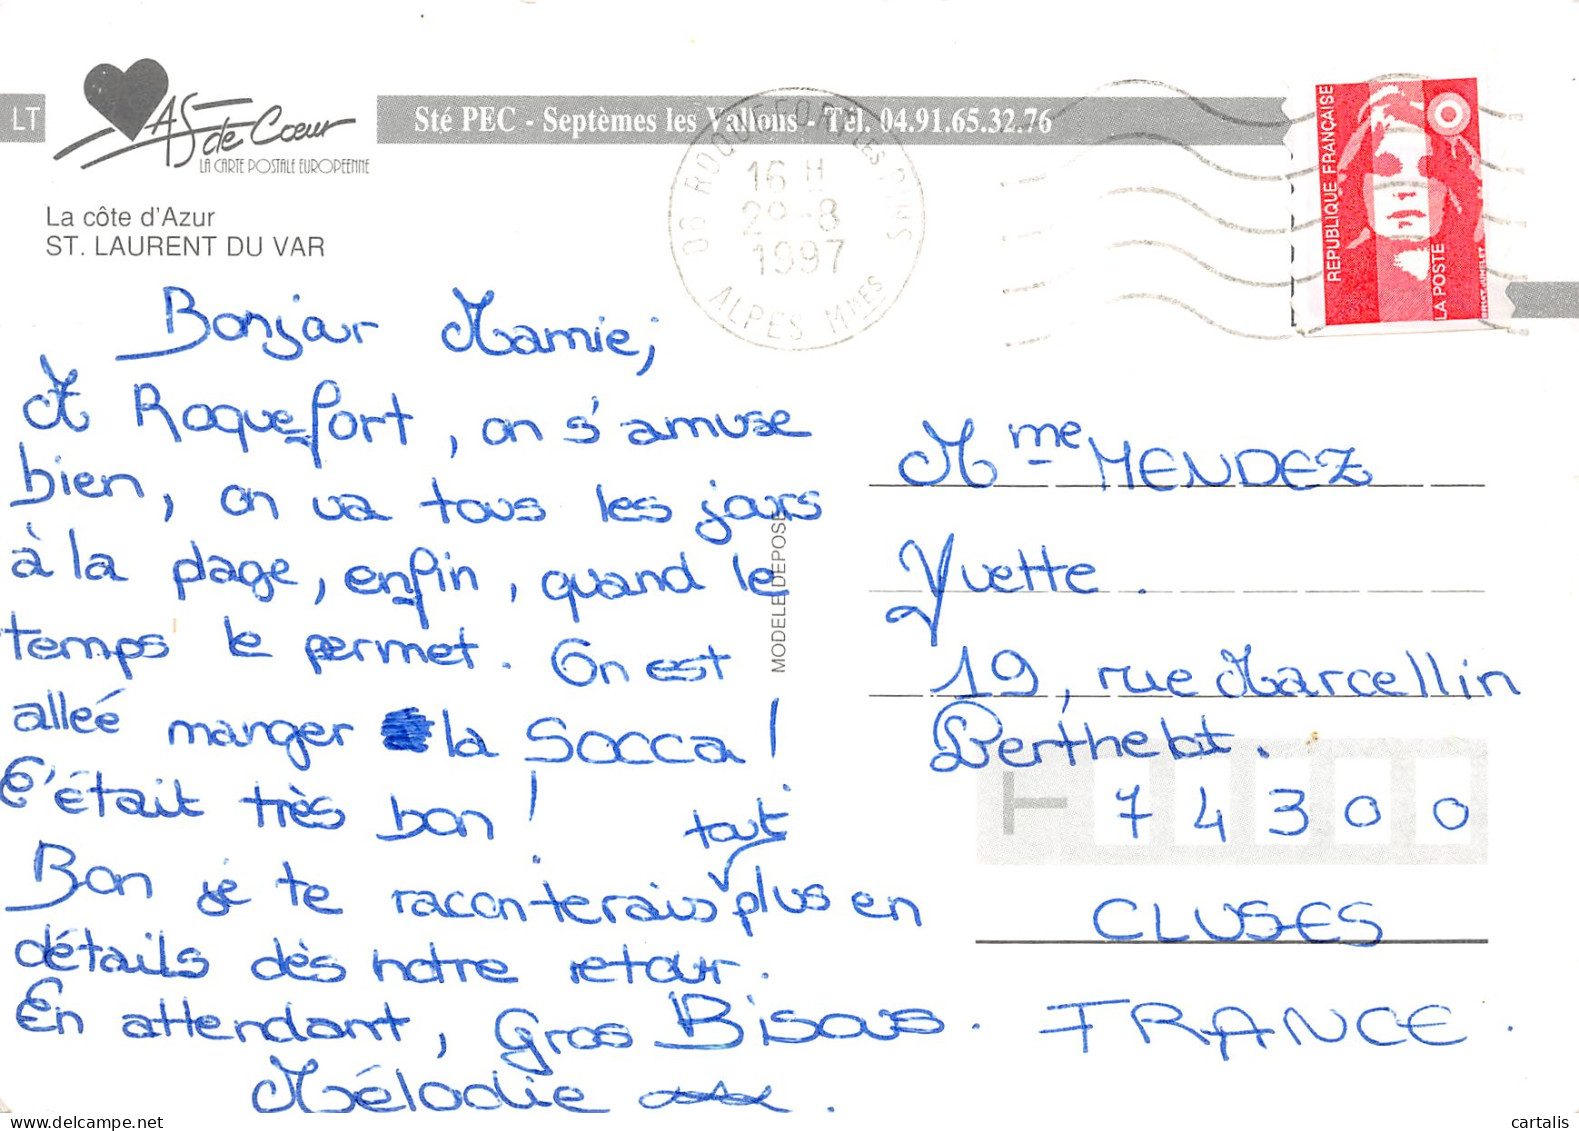 LT
As de Cœur
LA CARTE POSTALE EUROPEENNE
Sté PEC - Septèmes les Vallons - Tél. 04.91.65.32.76
La côte d'Azur
ST. LAURENT DU VAR
06 ROQUEFORT LES PINS
16 H
29-8
1997
ALPES Mmes
REPUBLIQUE FRANÇAISE
LA POSTE
Bonjour Mamie,
A Roquefort, on s'amuse
bien, on va tous les jours
à la plage, enfin, quand le
temps le permet. On est
alleé manger la Socca !
C'était très bon !
tout
Bon je te raconterais plus en
détails dès notre retour.
En attendant, Gros Bisous.
Mélodie
MODELE DEPOSE
Mme MENDEZ
Yvette.
19, rue Marcellin
Berthelot.
74300
CLUSES
FRANCE.
cartalis
delcampe.net